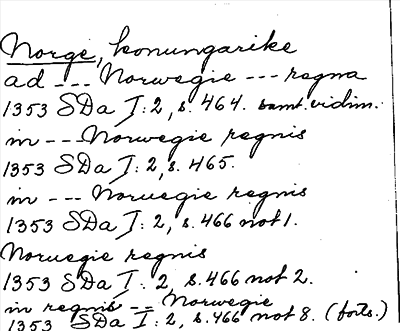 Norge, konungarike
ad --- Norwegie --- regna
1353 SDa I: 2, s. 464. samt. vidim.
in --- Norwegie regnis
1353 SDa I: 2, s. 465.
in --- Noruegie regnis
1353 SDa I: 2, s. 466 not 1.
Noruegie regnis
1353 SDa I: 2, s. 466 not 2.
in regnis -- Norwegie
1353 SDa I: 2, s. 466 not 8. (forts.)